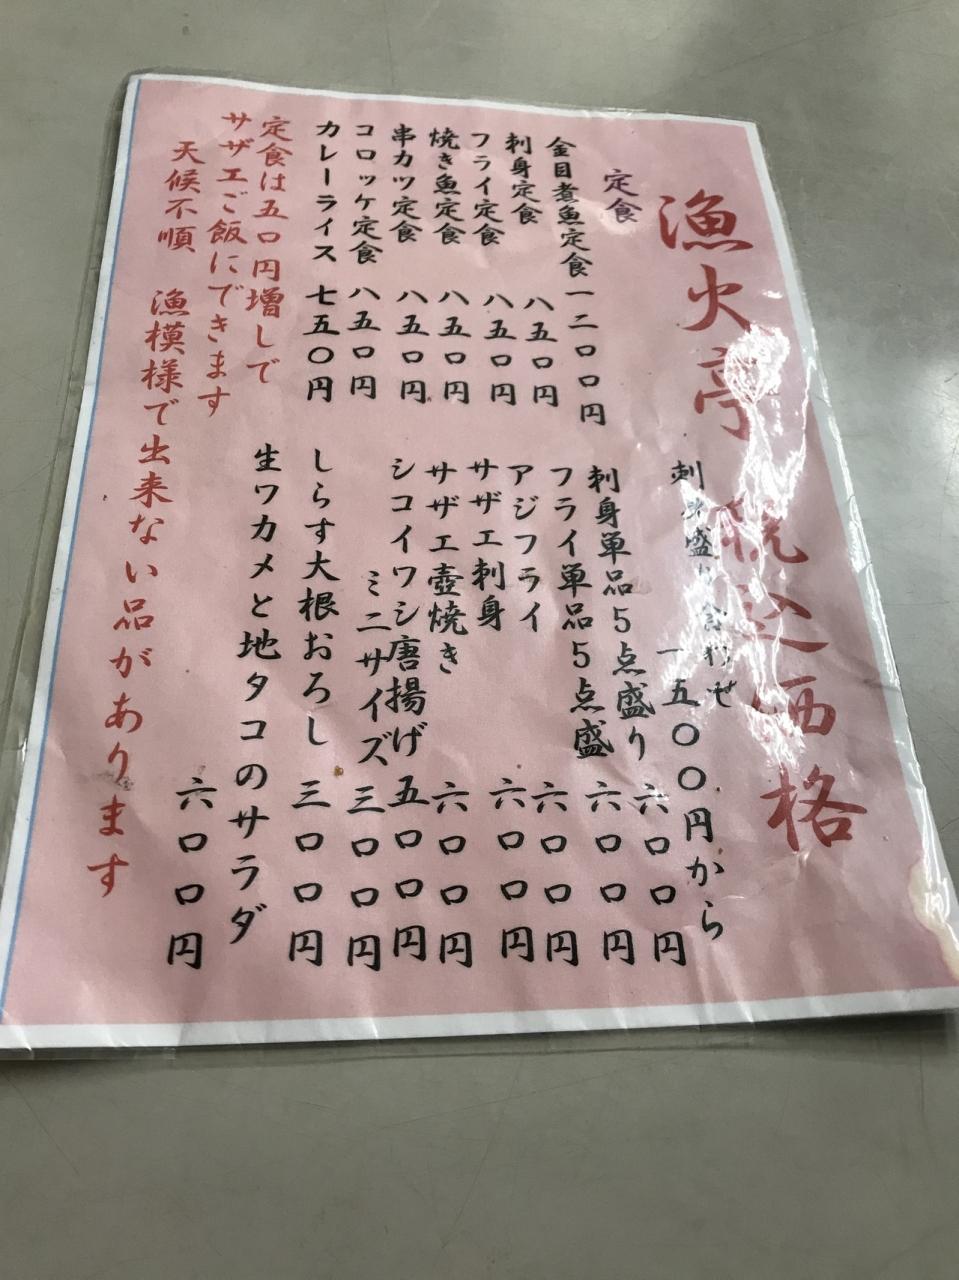 漁火亭 税込価格
定食
金目煮魚定食 一二〇〇円
刺身定食 八五〇円
フライ定食 八五〇円
焼き魚定食 八五〇円
串カツ定食 八五〇円
コロッケ定食 八五〇円
カレーライス 七五〇円
定食は五〇円増しで
サザエご飯にできます
刺身盛り合わせ
一五〇〇円から
刺身単品5点盛り 六〇〇円
フライ単品5点盛 六〇〇円
アジフライ 六〇〇円
サザエ刺身 六〇〇円
サザエ壺焼き 六〇〇円
シコイワシ唐揚げ 五〇〇円
ミニサイズ 三〇〇円
しらす大根おろし 三〇〇円
生ワカメと地タコのサラダ
六〇〇円
天候不順 漁模様で出来ない品があります